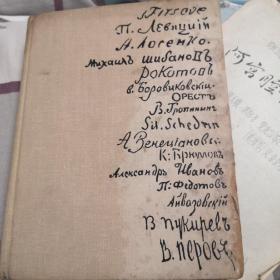 П. Левицкій
А. Лосенко.
Михаилъ Шибановъ
Рокотовъ
В. Боровиковскій
ОРЕСТЪ
В. Тропининъ
Sil. Schedrin
А. Венеціановъ
К. Брюлловъ
Александръ Ивановъ
П. Федотовъ
Айвазовскій
В. Пукиревъ
В. Перовъ
阿房